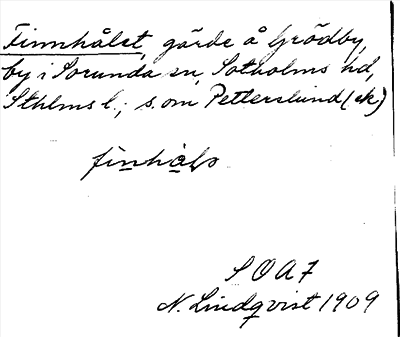 Finnhålet, gärde å Grödby,
by i Sorunda sn, Sotholms hd,
Sthlms l.; s.om Petterslund (ek)
finhåls
S O A F
N. Lindqvist 1909